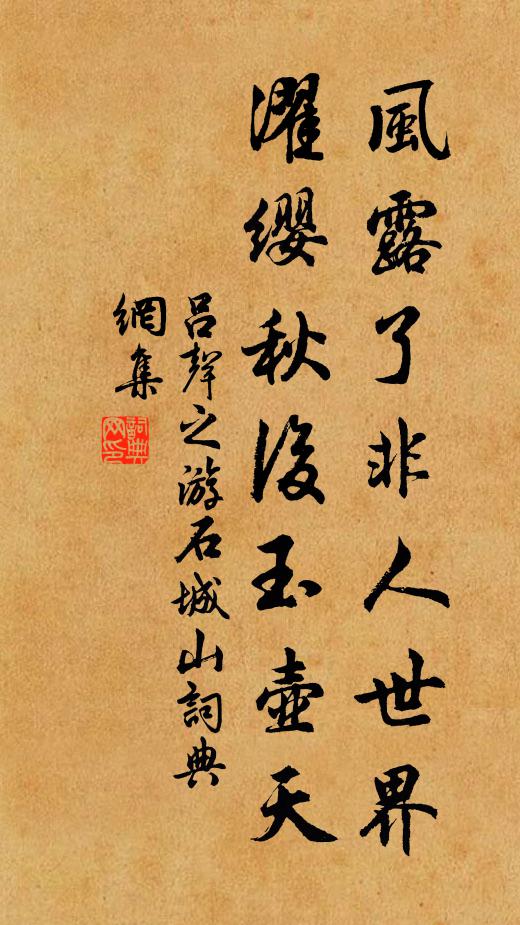 風露了非人世界
濯纓秋後玉壺天
呂聲之游石城山詞典
網集
詞典
网印